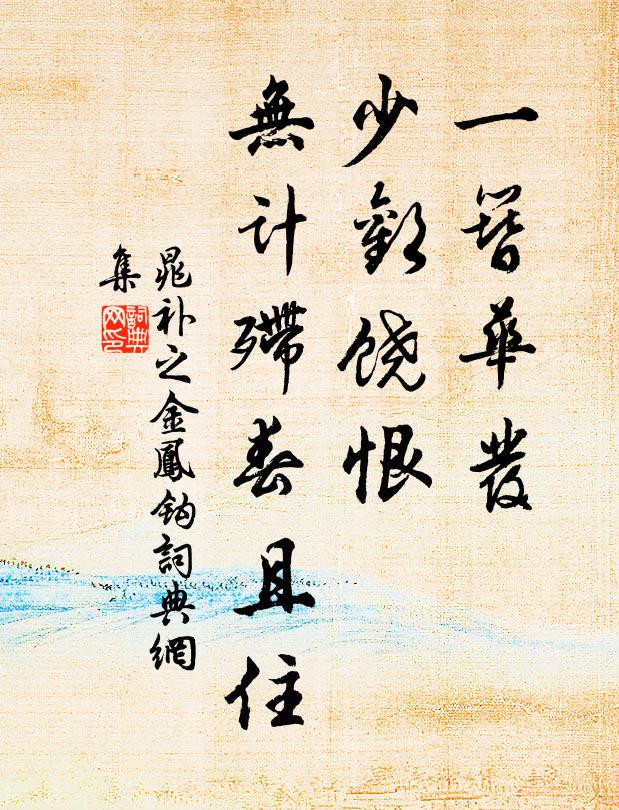 一簪華發
少歡饒恨
無計殢春且住
晁补之金鳳鈎詞典網
集
詞典
网印